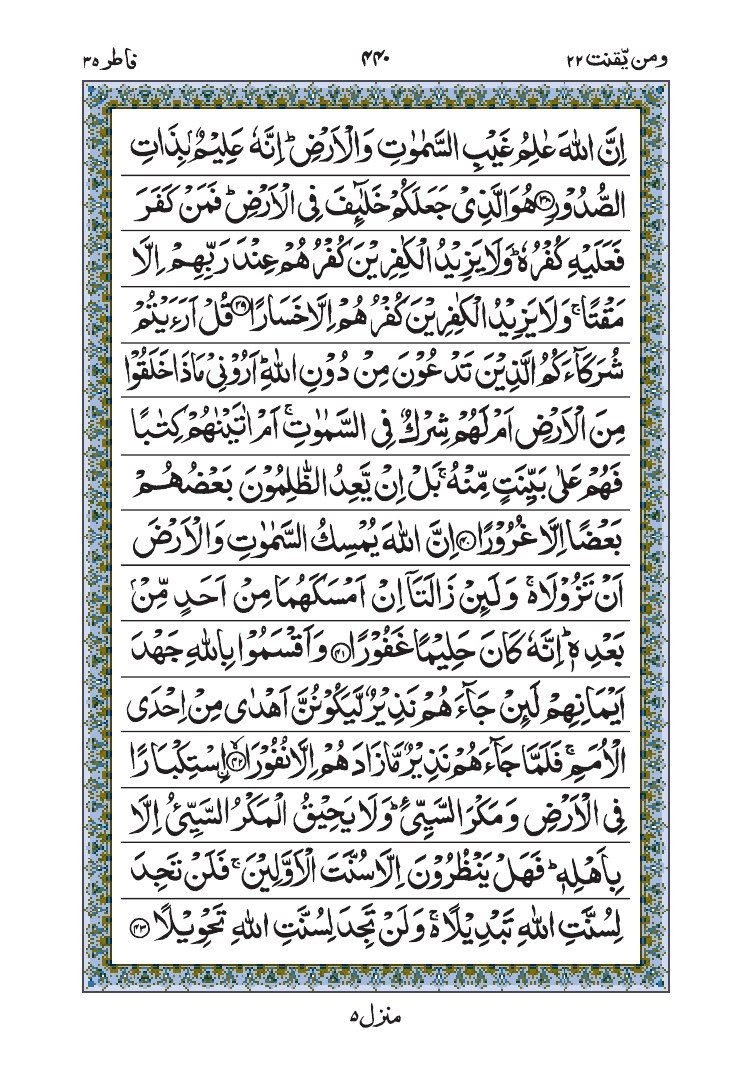 ومن یّقنت ۲۲
۴۴۰
فاطر ۳۵
اِنَّ اللّٰهَ عٰلِمُ غَيْبِ السَّمٰوٰتِ وَالْاَرْضِ ؕ اِنَّهٗ عَلِيْمٌۢ بِذَاتِ
الصُّدُوْرِ ﴿۳۸﴾ هُوَ الَّذِيْ جَعَلَكُمْ خَلٰٓئِفَ فِي الْاَرْضِ ؕ فَمَنْ كَفَرَ
فَعَلَيْهِ كُفْرُهٗ ؕ وَلَا يَزِيْدُ الْكٰفِرِيْنَ كُفْرُهُمْ عِنْدَ رَبِّهِمْ اِلَّا
مَقْتًا ۚ وَلَا يَزِيْدُ الْكٰفِرِيْنَ كُفْرُهُمْ اِلَّا خَسَارًا ﴿۳۹﴾ قُلْ اَرَءَيْتُمْ
شُرَكَآءَكُمُ الَّذِيْنَ تَدْعُوْنَ مِنْ دُوْنِ اللّٰهِ ؕ اَرُوْنِيْ مَاذَا خَلَقُوْا
مِنَ الْاَرْضِ اَمْ لَهُمْ شِرْكٌ فِي السَّمٰوٰتِ ۚ اَمْ اٰتَيْنٰهُمْ كِتٰبًا
فَهُمْ عَلٰى بَيِّنَتٍ مِّنْهُ ۚ بَلْ اِنْ يَّعِدُ الظّٰلِمُوْنَ بَعْضُهُمْ
بَعْضًا اِلَّا غُرُوْرًا ﴿۴۰﴾ اِنَّ اللّٰهَ يُمْسِكُ السَّمٰوٰتِ وَالْاَرْضَ
اَنْ تَزُوْلَا ۚ۬ وَلَئِنْ زَالَتَآ اِنْ اَمْسَكَهُمَا مِنْ اَحَدٍ مِّنْۢ
بَعْدِهٖ ؕ اِنَّهٗ كَانَ حَلِيْمًا غَفُوْرًا ﴿۴۱﴾ وَاَقْسَمُوْا بِاللّٰهِ جَهْدَ
اَيْمَانِهِمْ لَئِنْ جَآءَهُمْ نَذِيْرٌ لَّيَكُوْنُنَّ اَهْدٰى مِنْ اِحْدَى
الْاُمَمِ ۚ فَلَمَّا جَآءَهُمْ نَذِيْرٌ مَّا زَادَهُمْ اِلَّا نُفُوْرًا ﴿۴۲﴾ اِۨسْتِكْبَارًا
فِي الْاَرْضِ وَمَكْرَ السَّيِّئِ ؕ وَلَا يَحِيْقُ الْمَكْرُ السَّيِّئُ اِلَّا
بِاَهْلِهٖ ؕ فَهَلْ يَنْظُرُوْنَ اِلَّا سُنَّتَ الْاَوَّلِيْنَ ۚ فَلَنْ تَجِدَ
لِسُنَّتِ اللّٰهِ تَبْدِيْلًا ۚ۬ وَلَنْ تَجِدَ لِسُنَّتِ اللّٰهِ تَحْوِيْلًا ﴿۴۳﴾
منزل ۵